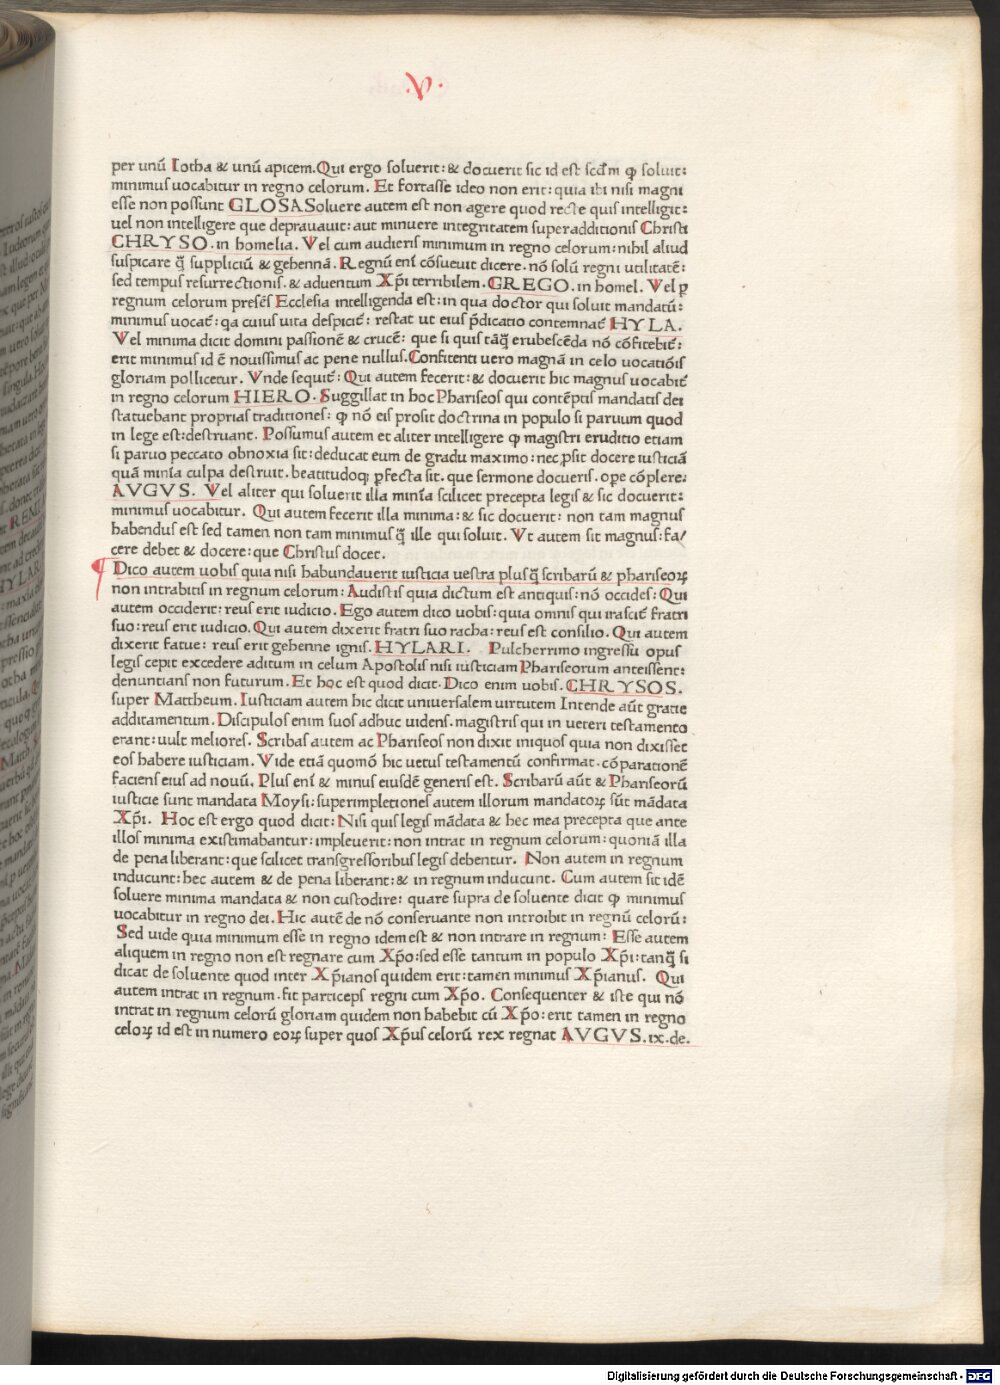 .V.
per unū Iotha & unū apicem. Qui ergo soluerit: & docuerit sic id est scd̄m ꝙ soluit:
minimus uocabitur in regno celorum. Et fortasse ideo non erit: quia ibi nisi magni
esse non possunt GLOSA Soluere autem est non agere quod recte quis intelligit:
uel non intelligere que deprauauit: aut minuere integritatem superadditionis Christi
CHRYSO. in homelia. Vel cum audieris minimum in regno celorum: nihil aliud
suspicare q̄ suppliciū & gehennā. Regnū eni cōsueuit dicere. nō solū regni utilitatē:
sed tempus resurrectionis. & aduentum Xp̄i terribilem. GREGO. in homel. Vel ꝑ
regnum celorum presēs Ecclesia intelligenda est: in qua doctor qui soluit mandatū:
minimus uocat̄: qa cuius uita despicit̄: restat ut eius p̄dicatio contemnat̄ HYLA.
Vel minima dicit domini passionē & crucē: que si quis tāq̄ erubescēda nō cōfitebit̄:
erit minimus id ē nouissimus ac pene nullus. Confitenti uero magnā in celo uocatiōis
gloriam pollicetur. Vnde sequit̄: Qui autem fecerit: & docuerit hic magnus uocabit̄
in regno celorum HIERO. Suggillat in hoc Phariseos qui contēptis mandatis dei
statuebant proprias traditiones: ꝙ nō eis prosit doctrina in populo si paruum quod
in lege est: destruant. Possumus autem et aliter intelligere ꝙ magistri eruditio etiam
si paruo peccato obnoxia sit: deducat eum de gradu maximo: nec ꝓsit docere iusticiā
quā minīa culpa destruit. beatitudoq; ꝑfecta sit. que sermone docueris. ope cōplere:
AVGVS. Vel aliter qui soluerit illa minīa scilicet precepta legis & sic docuerit:
minimus uocabitur. Qui autem fecerit illa minima: & sic docuerit: non tam magnus
habendus est sed tamen non tam minimus q̄ ille qui soluit. Vt autem sit magnus: fa/
cere debet & docere: que Christus docet.
¶ Dico autem uobis quia nisi habundauerit iusticia uestra plusq̄ scribarū & phariseoꝝ
non intrabitis in regnum celorum: Audistis quia dictum est antiquis: nō occides: Qui
autem occiderit: reus erit iudicio. Ego autem dico uobis: quia omnis qui irascit̄ fratri
suo: reus erit iudicio. Qui autem dixerit fratri suo racha: reus est consilio. Qui autem
dixerit fatue: reus erit gehenne ignis. HYLARI. Pulcherrimo ingressu opus
legis cepit excedere aditum in celum Apostolis nisi iusticiam Phariseorum anteissent:
denuntians non futurum. Et hoc est quod dicit. Dico enim uobis. CHRYSOS.
super Mattheum. Iusticiam autem hic dicit uniuersalem uirtutem Intende aūt gratie
additamentum. Discipulos enim suos adhuc uidens. magistris qui in ueteri testamento
erant: uult meliores. Scribas autem ac Phariseos non dixit iniquos quia non dixisset
eos habere iusticiam. Vide etiā quomō hic uetus testamentū confirmat. cōparationē
faciens eius ad nouū. Plus eni & minus eiusdē generis est. Scribarū aūt & Phariseorū
iusticie sunt mandata Moysi: superimpletiones autem illorum mandatoꝝ sūt mādata
Xp̄i. Hoc est ergo quod dicit: Nisi quis legis mādata & hec mea precepta que ante
illos minima existimabantur: impleuerit: non intrat in regnum celorum: quoniā illa
de pena liberant: que scilicet transgressoribus legis debentur. Non autem in regnum
inducunt: hec autem & de pena liberant: & in regnum inducunt. Cum autem sit idē
soluere minima mandata & non custodire: quare supra de soluente dicit ꝙ minimus
uocabitur in regno dei. Hic autē de nō conseruante non introibit in regnū celorū:
Sed uide quia minimum esse in regno idem est & non intrare in regnum: Esse autem
aliquem in regno non est regnare cum Xp̄o: sed esse tantum in populo Xp̄i: tanq̄ si
dicat de soluente quod inter Xp̄ianos quidem erit: tamen minimus Xp̄ianus. Qui
autem intrat in regnum. fit particeps regni cum Xp̄o. Consequenter & iste qui nō
intrat in regnum celorū gloriam quidem non habebit cū Xp̄o: erit tamen in regno
celoꝝ id est in numero eoꝝ super quos Xp̄us celorū rex regnat AVGVS. ix. de.
Digitalisierung gefördert durch die Deutsche Forschungsgemeinschaft - DFG